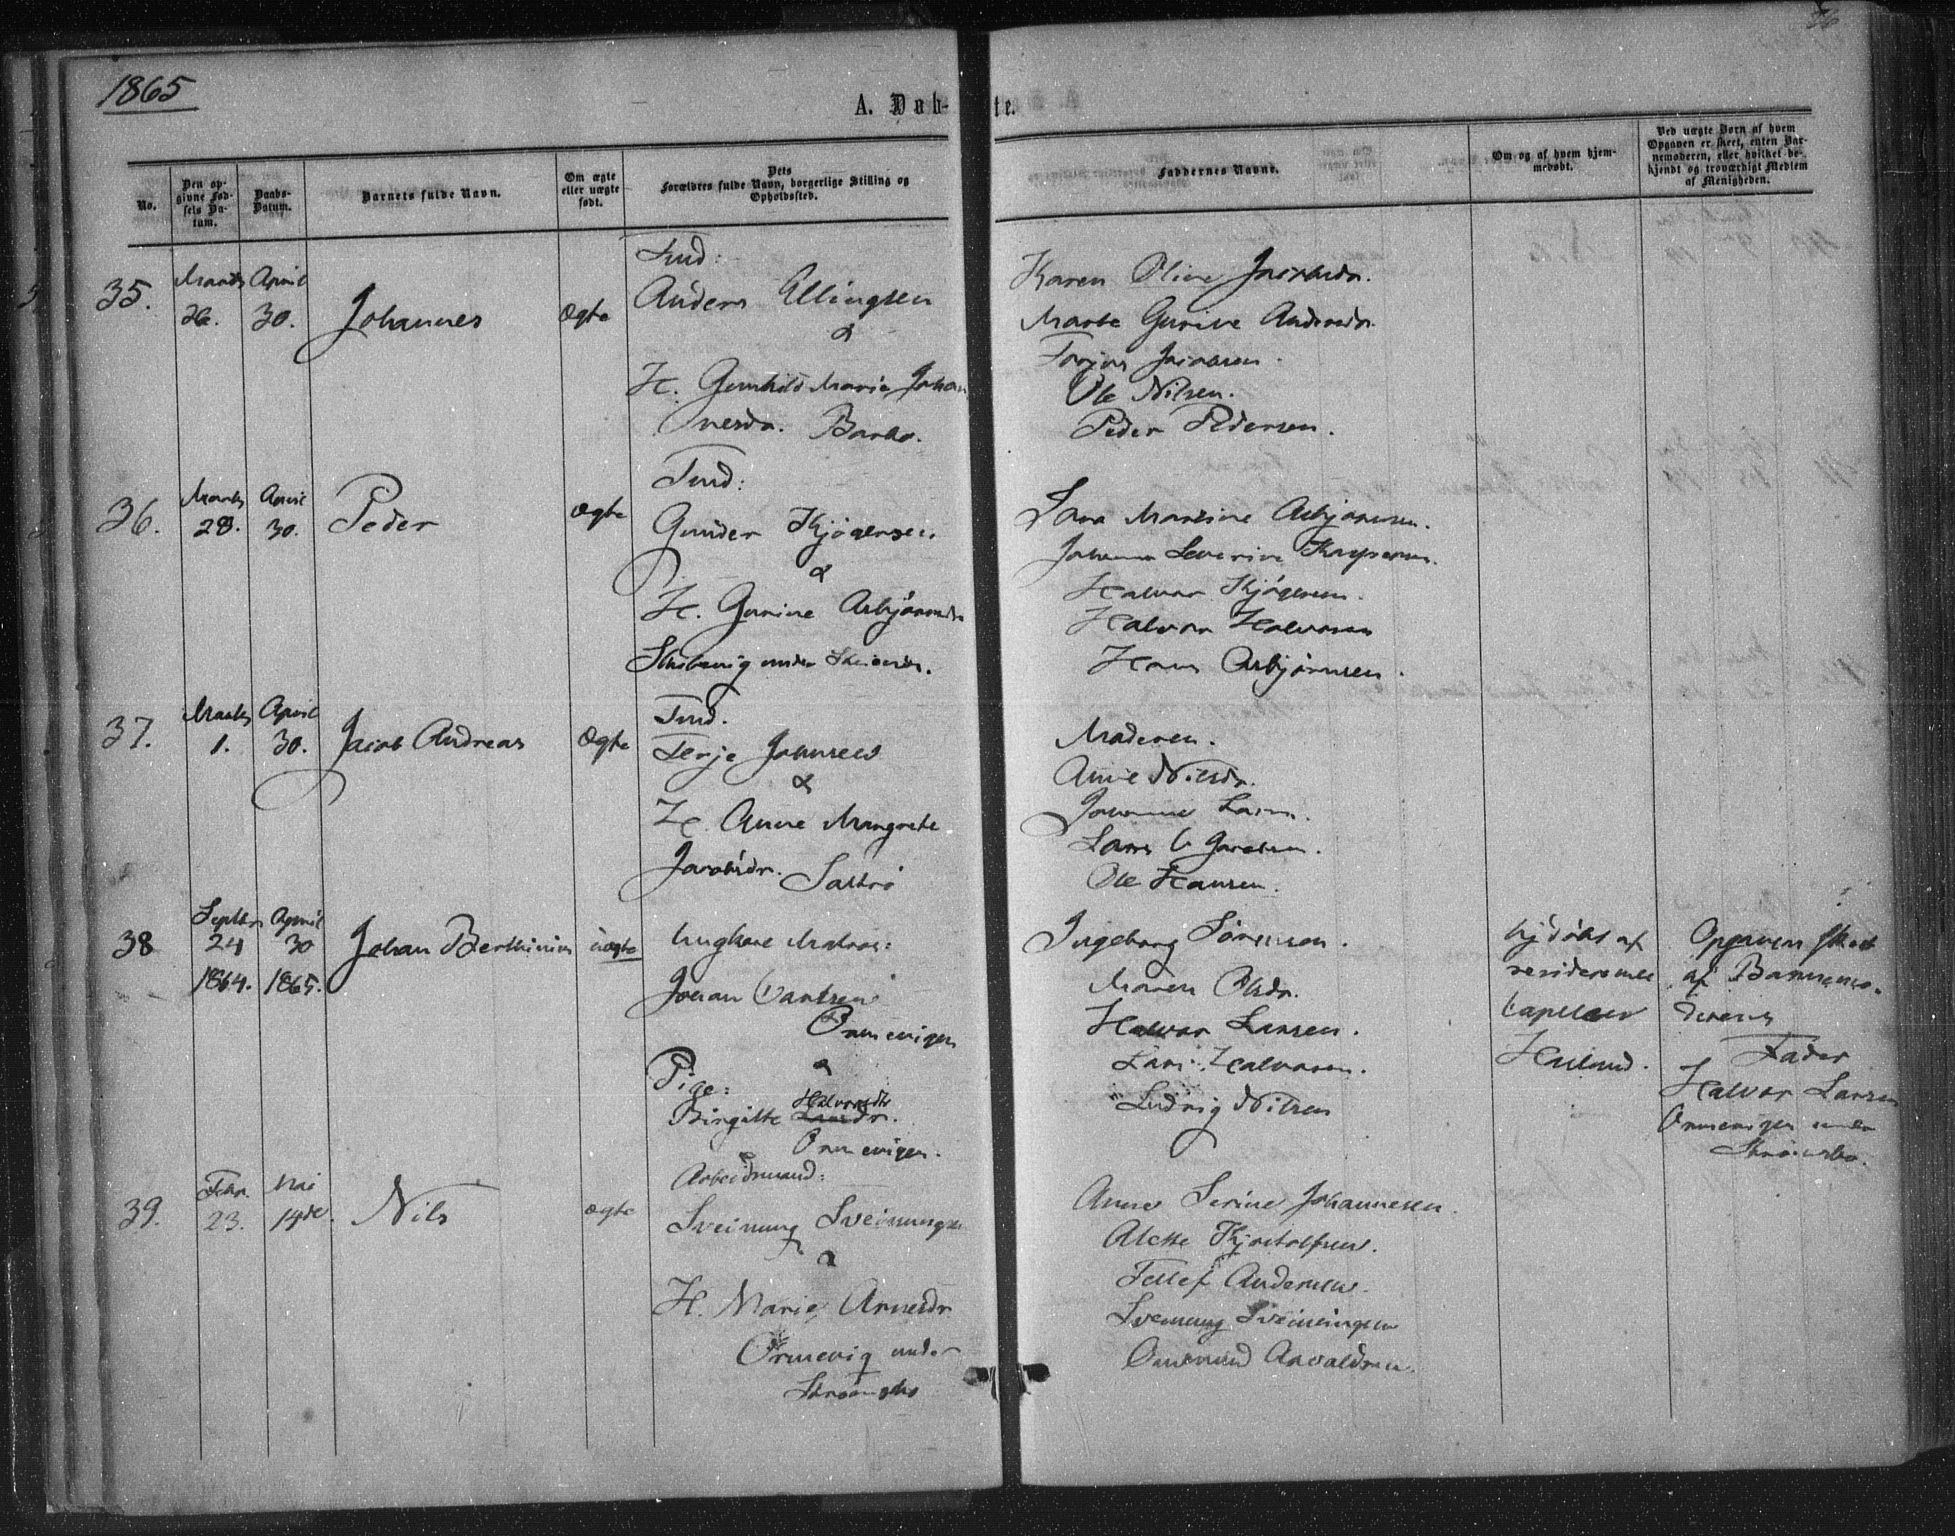 1865
26
A. Døb-
te.
No.
Den op-
givne Fød-
sels Da-
tum.
Daabs-
Datum.
Barnets fulde Navn.
Om ægte
eller uægte
født.
Dets
Forældres fulde Navn, borgerlige Stilling og
Opholdssted.
Faddernes Navne.
Om og af hvem hjem-
medøbt.
Ved uægte Børn af hvem
Opgaven er skeet, enten Bar-
nemoderen, eller hvilket be-
kjendt og troværdigt Medlem
af Menigheden.
35.
Marts
26.
April
30.
Johannes
Ægte
Ind:
Anders Ellingsen
&
H. Gunhild Marie Johan
nesdr. Barbo.
Karen Oline Jacobsdr.
Marte Gurine Andersdr.
Torjus Jacobsen.
Ole Nilsen.
Peder Pedersen.
36.
Marts
28.
April
30.
Peder
Ægte
Ind:
Gunder Kjøgersen
&
H. Gurine Asbjørnsdr
under
Martine Asbjørnsen.
Johanne Severine
Halvor Kjøgersen.
Halvor Halvorsen
Hans Asbjørnsen.
37.
Marts
1.
April
30.
Jacob Andreas
Ægte
Ind.
Terje Johnsen
&
H. Anne Margrete
Jacobsdr. Saltrø
Moderen.
Anne Nilsdr.
Johanne
Lars
Ole Hansen.
38
Septbr
24
1864.
April
30
1865.
Johan Berthinius
uægte
Ungkarl Matros:
Johan
Ormevigen
&
Pige:
Halvorsdr
Birgitte Larsdr.
Ormevigen.
Ingeborg Sørensen.
Maren Olsdr.
Halvor Larsen.
Lars Halvorsen.
Ludvig Nilsen
hjdøbt af
residerende
Capellan
Opgaven skeet
af Barnemo-
derens
Fader
Halvor Larsen
Ormevigen under
39.
Febr.
23.
Mai
14de.
Nils
Ægte
Arbeidsmand:
Sveinung Sveinungsen
&
H. Marie Arnesdr
Ormevig under
Anne Serine Johannesen.
Tellef Andersen.
Sveinung Sveinungsen